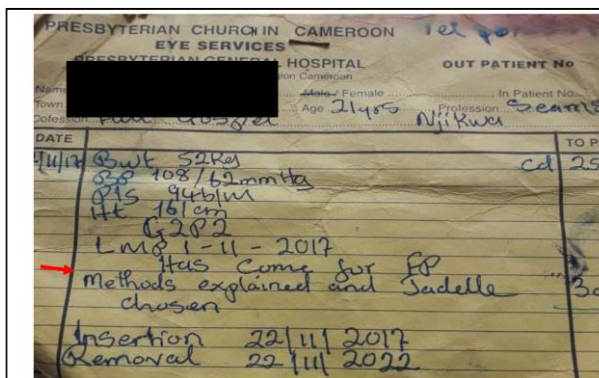 PRESBYTERIAN CHURCH IN CAMEROON Tel
EYE SERVICES
PRESBYTERIAN GENERAL HOSPITAL OUT PATIENT No
Cameroon
Name Male / Female In Patient No.
Town Age 21yrs Profession Seams
Full Gospel Njikwa
DATE TO P
/11/17 Bwt 52kg cd 25
BP 108/62mmHg
94b/m
Ht 161cm
G2P2
LMP 1-11-2017
Has Come for FP
Methods explained and Jadelle
chosen
Insertion 22/11/2017
Removal 22/11/2022